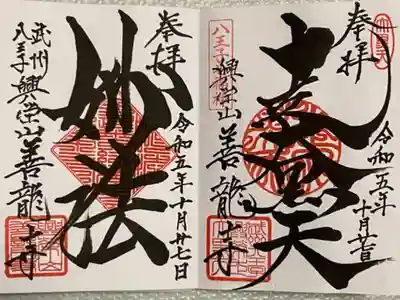 奉拝
大黒天
令和五年
八王子
興栄山善龍寺
奉拝
妙法
令和五年十月廿七日
武州
八王子興栄山善龍寺